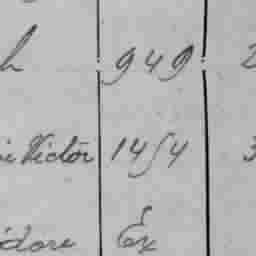 h 949 2
i Victor 1454 3
idore Ex